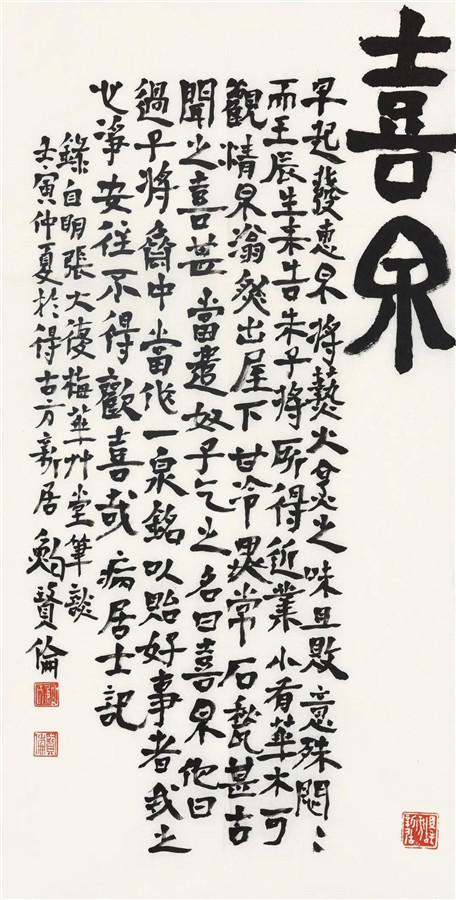 喜泉
早起發惠泉將爇火烹之味且敗意殊悶〻
而王辰生来告朱子將所得近業小有華木可
觀清泉滃然出屋下甘冷異常石甃甚古
聞之喜甚當遣奴子乞之名曰喜泉他日
過子將齋中當作一泉銘以貽好事者我之
心淨安往不得歡喜哉病居士記
錄自明張大復梅華艸堂筆談
壬寅仲夏於得古方新居鮑賢倫